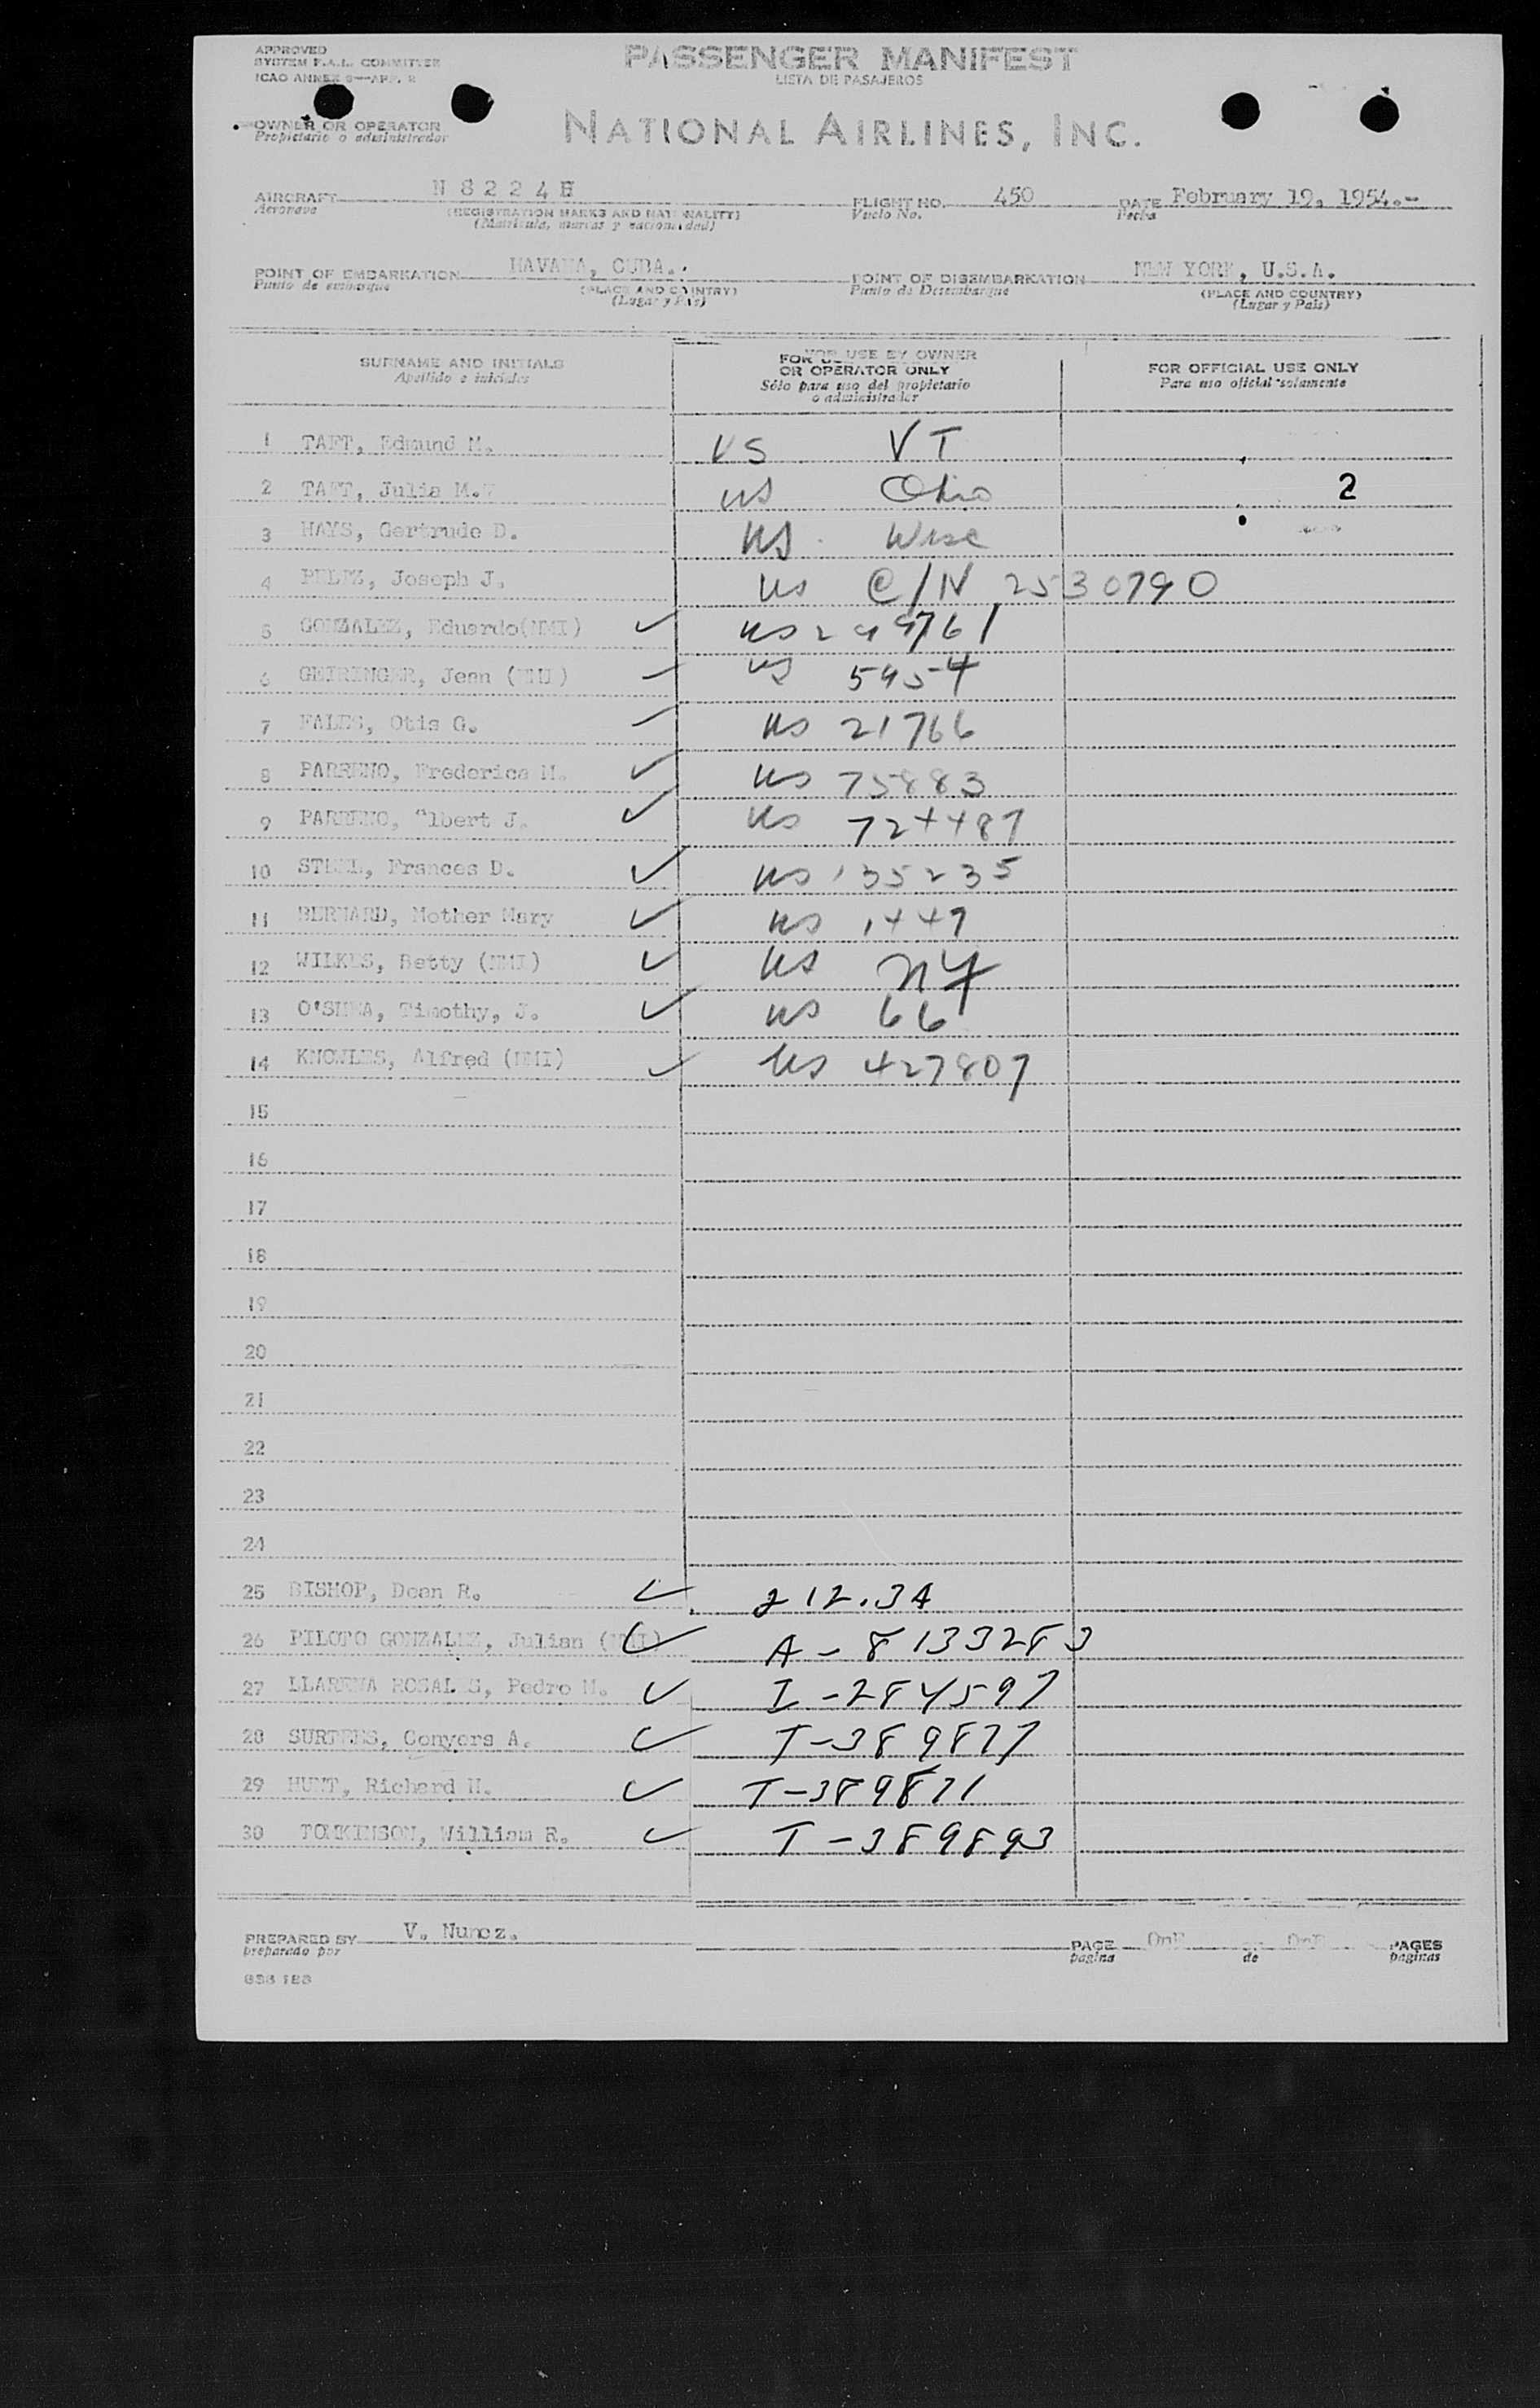 APPROVED
SYSTEM F.A.L. COMMITTEE
ICAO ANNEX 9—APP.
PASSENGER MANIFEST
LISTA DE PASAJEROS
OWNER OR OPERATOR
Propietario o administrador
NATIONAL AIRLINES, INC.
AIRCRAFT N 8 2 2 4 H FLIGHT NO. 450 DATE February 19, 1954.-
Aeronave (REGISTRATION MARKS AND NATIONALITY) Vuelo No. Fecha
(Matricula, marcas y nacionalidad)
POINT OF EMBARKATION HAVANA, CUBA. POINT OF DISEMBARKATION NEW YORK, U.S.A.
Punto de embarque (PLACE AND COUNTRY) Punto de Desembarque (PLACE AND COUNTRY)
(Lugar y País) (Lugar y País)
SURNAME AND INITIALS
Apellido e iniciales
FOR USE BY OWNER
OR OPERATOR ONLY
Sólo para uso del propietario
o administrador
FOR OFFICIAL USE ONLY
Para uso oficial solamente
1 TAFT, Edmund M. US VT
2 TAFT, Julia M. US Ohio 2
3 HAYS, Gertrude D. US Wisc
4 Joseph J. US C/N 2530790
5 GONZALEZ, Eduardo(NMI) ✓ US 299761
6 GEIRINGER, Jean (NMI) ✓ US 5954
7 FALES, Otis G. ✓ US 21766
8 PARRENO, Frederica M. ✓ US 75883
9 PARRENO, "lbert J. ✓ US 724487
10 STEEL, Frances D. ✓ US 135235
11 BERNARD, Mother Mary ✓ US 1447
12 WILKES, Betty (NMI) ✓ US NY
13 O'SHEA, Timothy, J. ✓ US 66
14 KNOWLES, Alfred (NMI) ✓ US 427807
15
16
17
18
19
20
21
22
23
24
25 BISHOP, Dean R. ✓ 212.34
26 PILOTO GONZALEZ, Julian (NMI) ✓ A-8133283
27 LLARENA ROSALES, Pedro M. ✓ I-284597
28 SURTEES, Conyers A. ✓ T-389877
29 HUNT, Richard H. ✓ T-389871
30 TOMKINSON, William R. ✓ T-389893
PREPARED BY V. Nunez. PAGE OnE OnE PAGES
preparado por pagina de paginas